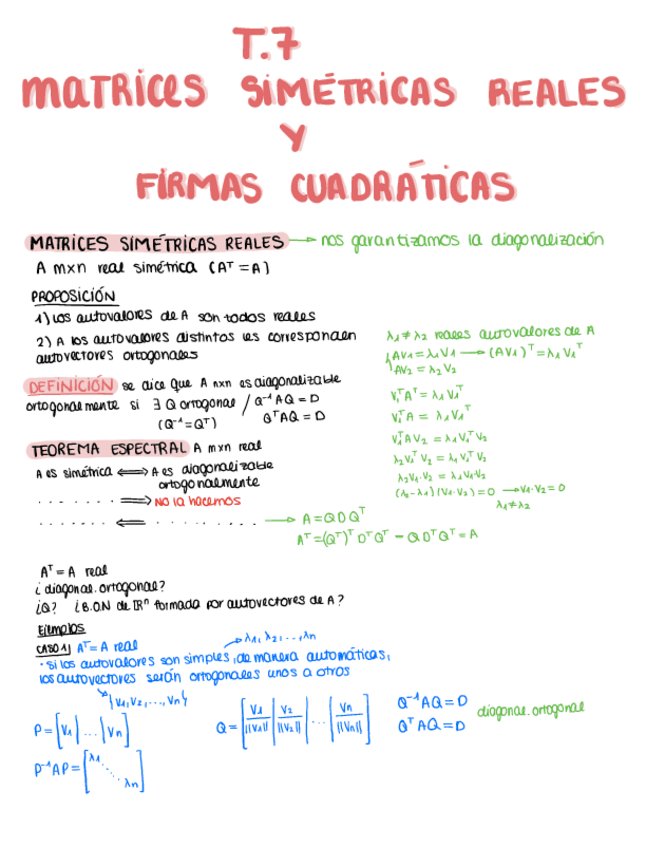 T.7
MATRICES SIMÉTRICAS REALES
Y
FIRMAS CUADRÁTICAS
MATRICES SIMÉTRICAS REALES → nos garantizamos la diagonalización
A m×n real simétrica (Aᵀ = A)
PROPOSICIÓN
1) Los autovalores de A son todos reales
2) A los autovalores distintos les corresponden
autovectores ortogonales
λ1 ≠ λ2 reales autovalores de A
AV1 = λ1 V1 → (AV1)ᵀ = λ1 V1ᵀ
AV2 = λ2 V2
V1ᵀ Aᵀ = λ1 V1ᵀ
V1ᵀ A = λ1 V1ᵀ
V1ᵀ A V2 = λ1 V1ᵀ V2
λ2 V1ᵀ V2 = λ1 V1ᵀ V2
λ2 V1 · V2 = λ1 V1 · V2
(λ2 - λ1)(V1 · V2) = 0 → V1 · V2 = 0
λ1 ≠ λ2
DEFINICIÓN se dice que A n×n es diagonalizable
ortogonalmente si ∃ Q ortogonal / Q⁻¹AQ = D
(Q⁻¹ = Qᵀ) QᵀAQ = D
TEOREMA ESPECTRAL A m×n real
A es simétrica ⟺ A es diagonalizable
ortogonalmente
. . . . . . . ⟹ NO la hacemos
. . . . . . . ⟸ . . . . . . . . . → A = QDQᵀ
Aᵀ = (Qᵀ)ᵀ Dᵀ Qᵀ = Q Dᵀ Qᵀ = A
Aᵀ = A real
¿diagonal. ortogonal?
¿Q? ¿B.O.N de ℝⁿ formada por autovectores de A?
Ejemplos
CASO 1) Aᵀ = A real
→ λ1, λ2, ..., λn
· si los autovalores son simples, de manera automáticas,
los autovectores serán ortogonales unos a otros
{V1, V2, ..., Vn}
P = [V1 | ... | Vn]
Q = [V1/||V1|| | V2/||V2|| | ... | Vn/||Vn||]
Q⁻¹AQ = D
QᵀAQ = D
diagonal. ortogonal
P⁻¹AP = [λ1 ... λn]